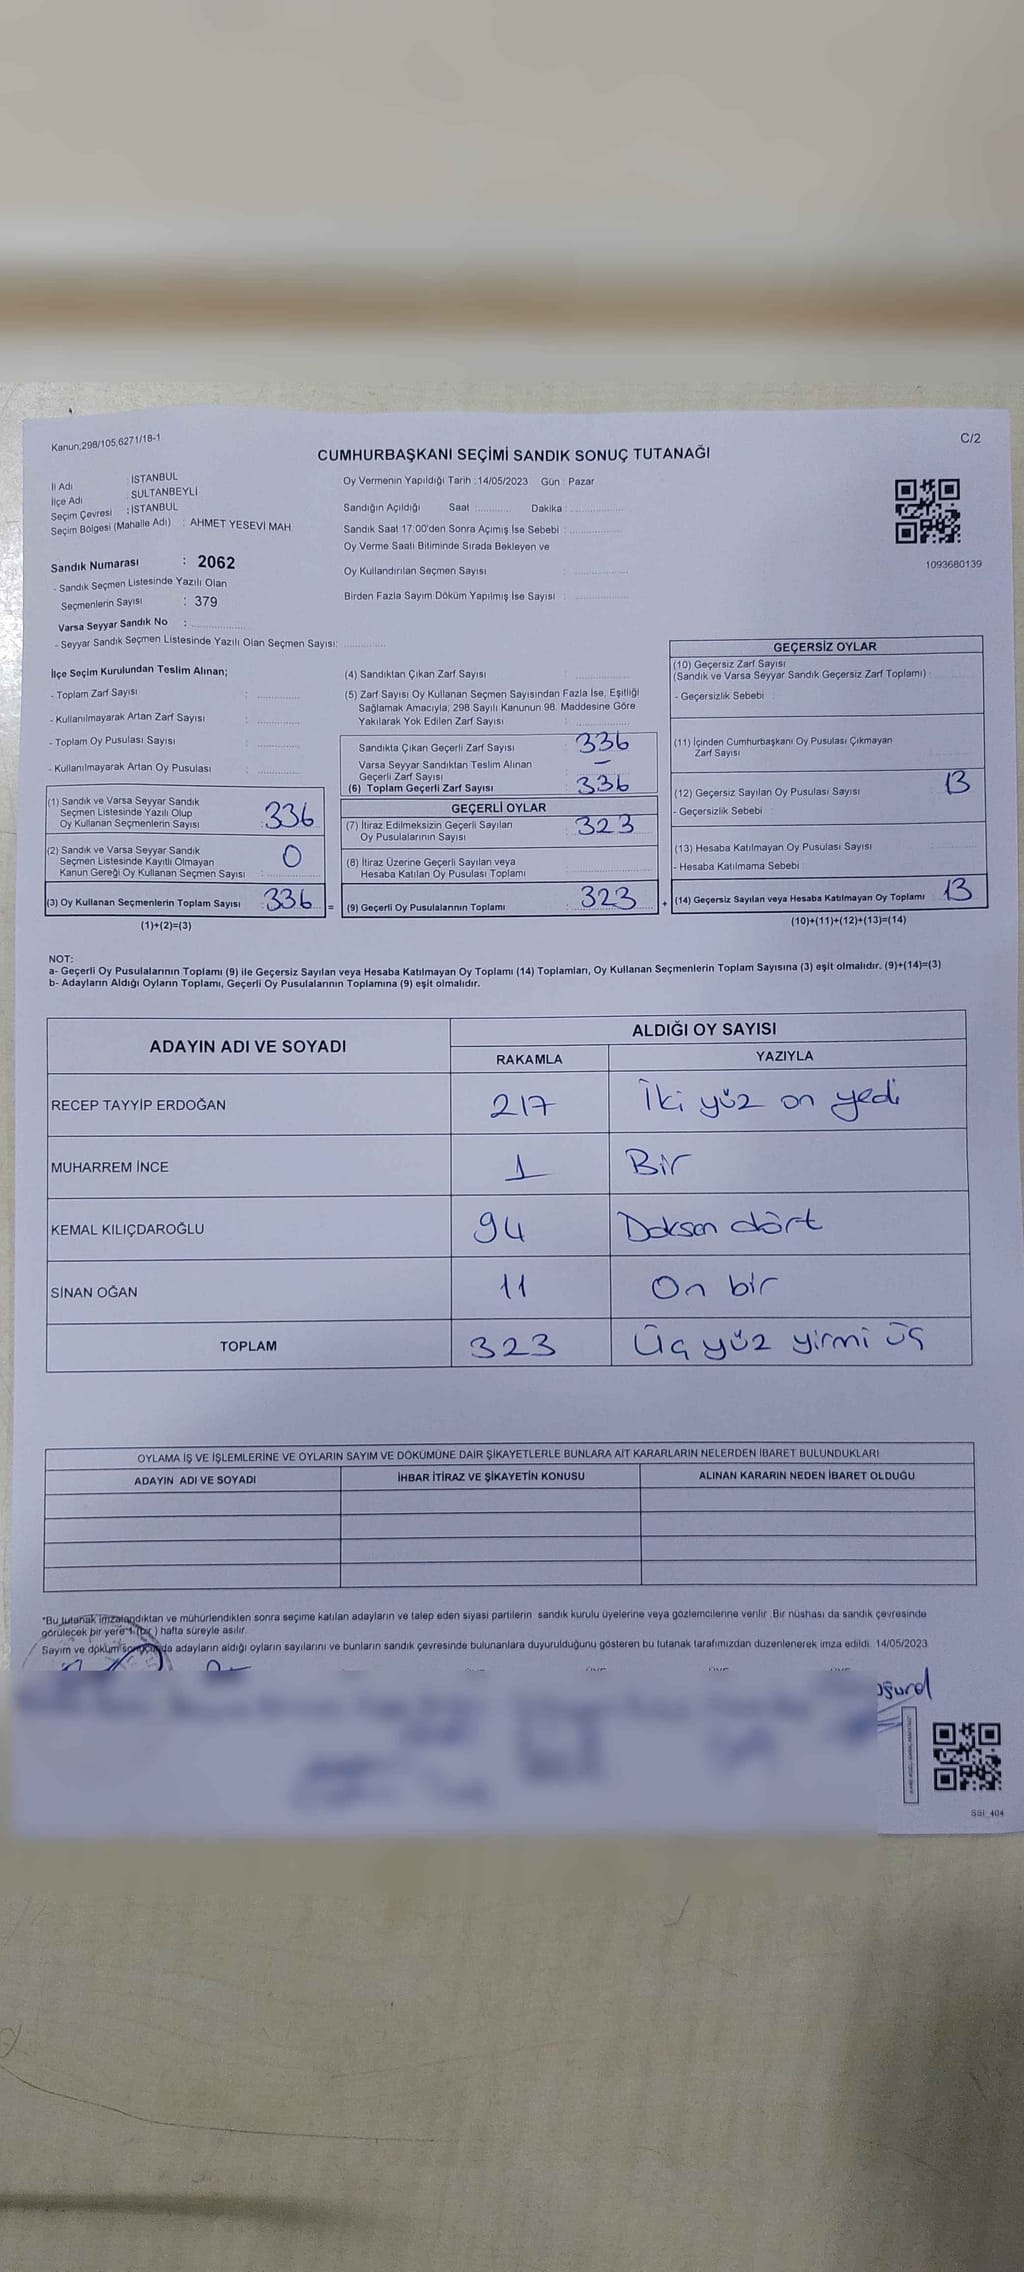 Kanun;298/105,6271/18-1
C/2
CUMHURBAŞKANI SEÇİMİ SANDIK SONUÇ TUTANAĞI
İl Adı : İSTANBUL
İlçe Adı : SULTANBEYLİ
Seçim Çevresi : İSTANBUL
Seçim Bölgesi (Mahalle Adı) : AHMET YESEVİ MAH.
Sandık Numarası : 2062
- Sandık Seçmen Listesinde Yazılı Olan
Seçmenlerin Sayısı : 379
Varsa Seyyar Sandık No :
- Seyyar Sandık Seçmen Listesinde Yazılı Olan Seçmen Sayısı:
Oy Vermenin Yapıldığı Tarih :14/05/2023 Gün : Pazar
Sandığın Açıldığı Saat Dakika :
Sandık Saat 17.00'den Sonra Açımış İse Sebebi :
Oy Verme Saati Bitiminde Sırada Bekleyen ve
Oy Kullandırılan Seçmen Sayısı :
Birden Fazla Sayım Döküm Yapılmış İse Sayısı :
1093680139
İlçe Seçim Kurulundan Teslim Alınan;
- Toplam Zarf Sayısı :
- Kullanılmayarak Artan Zarf Sayısı :
- Toplam Oy Pusulası Sayısı :
- Kullanılmayarak Artan Oy Pusulası :
(1) Sandık ve Varsa Seyyar Sandık
Seçmen Listesinde Yazılı Olup
Oy Kullanan Seçmenlerin Sayısı : 336
(2) Sandık ve Varsa Seyyar Sandık
Seçmen Listesinde Kayıtlı Olmayan
Kanun Gereği Oy Kullanan Seçmen Sayısı : 0
(3) Oy Kullanan Seçmenlerin Toplam Sayısı : 336 =
(1)+(2)=(3)
(4) Sandıktan Çıkan Zarf Sayısı :
(5) Zarf Sayısı Oy Kullanan Seçmen Sayısından Fazla İse, Eşitliği
Sağlamak Amacıyla; 298 Sayılı Kanunun 98. Maddesine Göre
Yakılarak Yok Edilen Zarf Sayısı :
Sandıkta Çıkan Geçerli Zarf Sayısı : 336
Varsa Seyyar Sandıktan Teslim Alınan
Geçerli Zarf Sayısı : –
(6) Toplam Geçerli Zarf Sayısı : 336
GEÇERLİ OYLAR
(7) İtiraz Edilmeksizin Geçerli Sayılan
Oy Pusulalarının Sayısı : 323
(8) İtiraz Üzerine Geçerli Sayılan veya
Hesaba Katılan Oy Pusulası Toplamı :
(9) Geçerli Oy Pusulalarının Toplamı : 323 +
GEÇERSİZ OYLAR
(10) Geçersiz Zarf Sayısı
(Sandık ve Varsa Seyyar Sandık Geçersiz Zarf Toplamı) :
- Geçersizlik Sebebi :
(11) İçinden Cumhurbaşkanı Oy Pusulası Çıkmayan
Zarf Sayısı :
(12) Geçersiz Sayılan Oy Pusulası Sayısı : 13
- Geçersizlik Sebebi :
(13) Hesaba Katılmayan Oy Pusulası Sayısı :
- Hesaba Katılmama Sebebi :
(14) Geçersiz Sayılan veya Hesaba Katılmayan Oy Toplamı : 13
(10)+(11)+(12)+(13)=(14)
NOT:
a- Geçerli Oy Pusulalarının Toplamı (9) ile Geçersiz Sayılan veya Hesaba Katılmayan Oy Toplamı (14) Toplamları, Oy Kullanan Seçmenlerin Toplam Sayısına (3) eşit olmalıdır. (9)+(14)=(3)
b- Adayların Aldığı Oyların Toplamı, Geçerli Oy Pusulalarının Toplamına (9) eşit olmalıdır.
ADAYIN ADI VE SOYADI ALDIĞI OY SAYISI
RAKAMLA YAZIYLA
RECEP TAYYİP ERDOĞAN 217 İki yüz on yedi
MUHARREM İNCE 1 Bir
KEMAL KILIÇDAROĞLU 94 Doksan dört
SİNAN OĞAN 11 On bir
TOPLAM 323 Üç yüz yirmi üç
OYLAMA İŞ VE İŞLEMLERİNE VE OYLARIN SAYIM VE DÖKÜMÜNE DAİR ŞİKAYETLERLE BUNLARA AİT KARARLARIN NELERDEN İBARET BULUNDUKLARI
ADAYIN ADI VE SOYADI İHBAR İTİRAZ VE ŞİKAYETİN KONUSU ALINAN KARARIN NEDEN İBARET OLDUĞU
*Bu tutanak imzalandıktan ve mühürlendikten sonra seçime katılan adayların ve talep eden siyasi partilerin sandık kurulu üyelerine veya gözlemcilerine verilir. Bir nüshası da sandık çevresinde
görülecek bir yere 1 (bir) hafta süreyle asılır.
Sayım ve döküm sonucunda adayların aldığı oyların sayılarını ve bunların sandık çevresinde bulunanlara duyurulduğunu gösteren bu tutanak tarafımızdan düzenlenerek imza edildi. 14/05/2023
SSİ_404